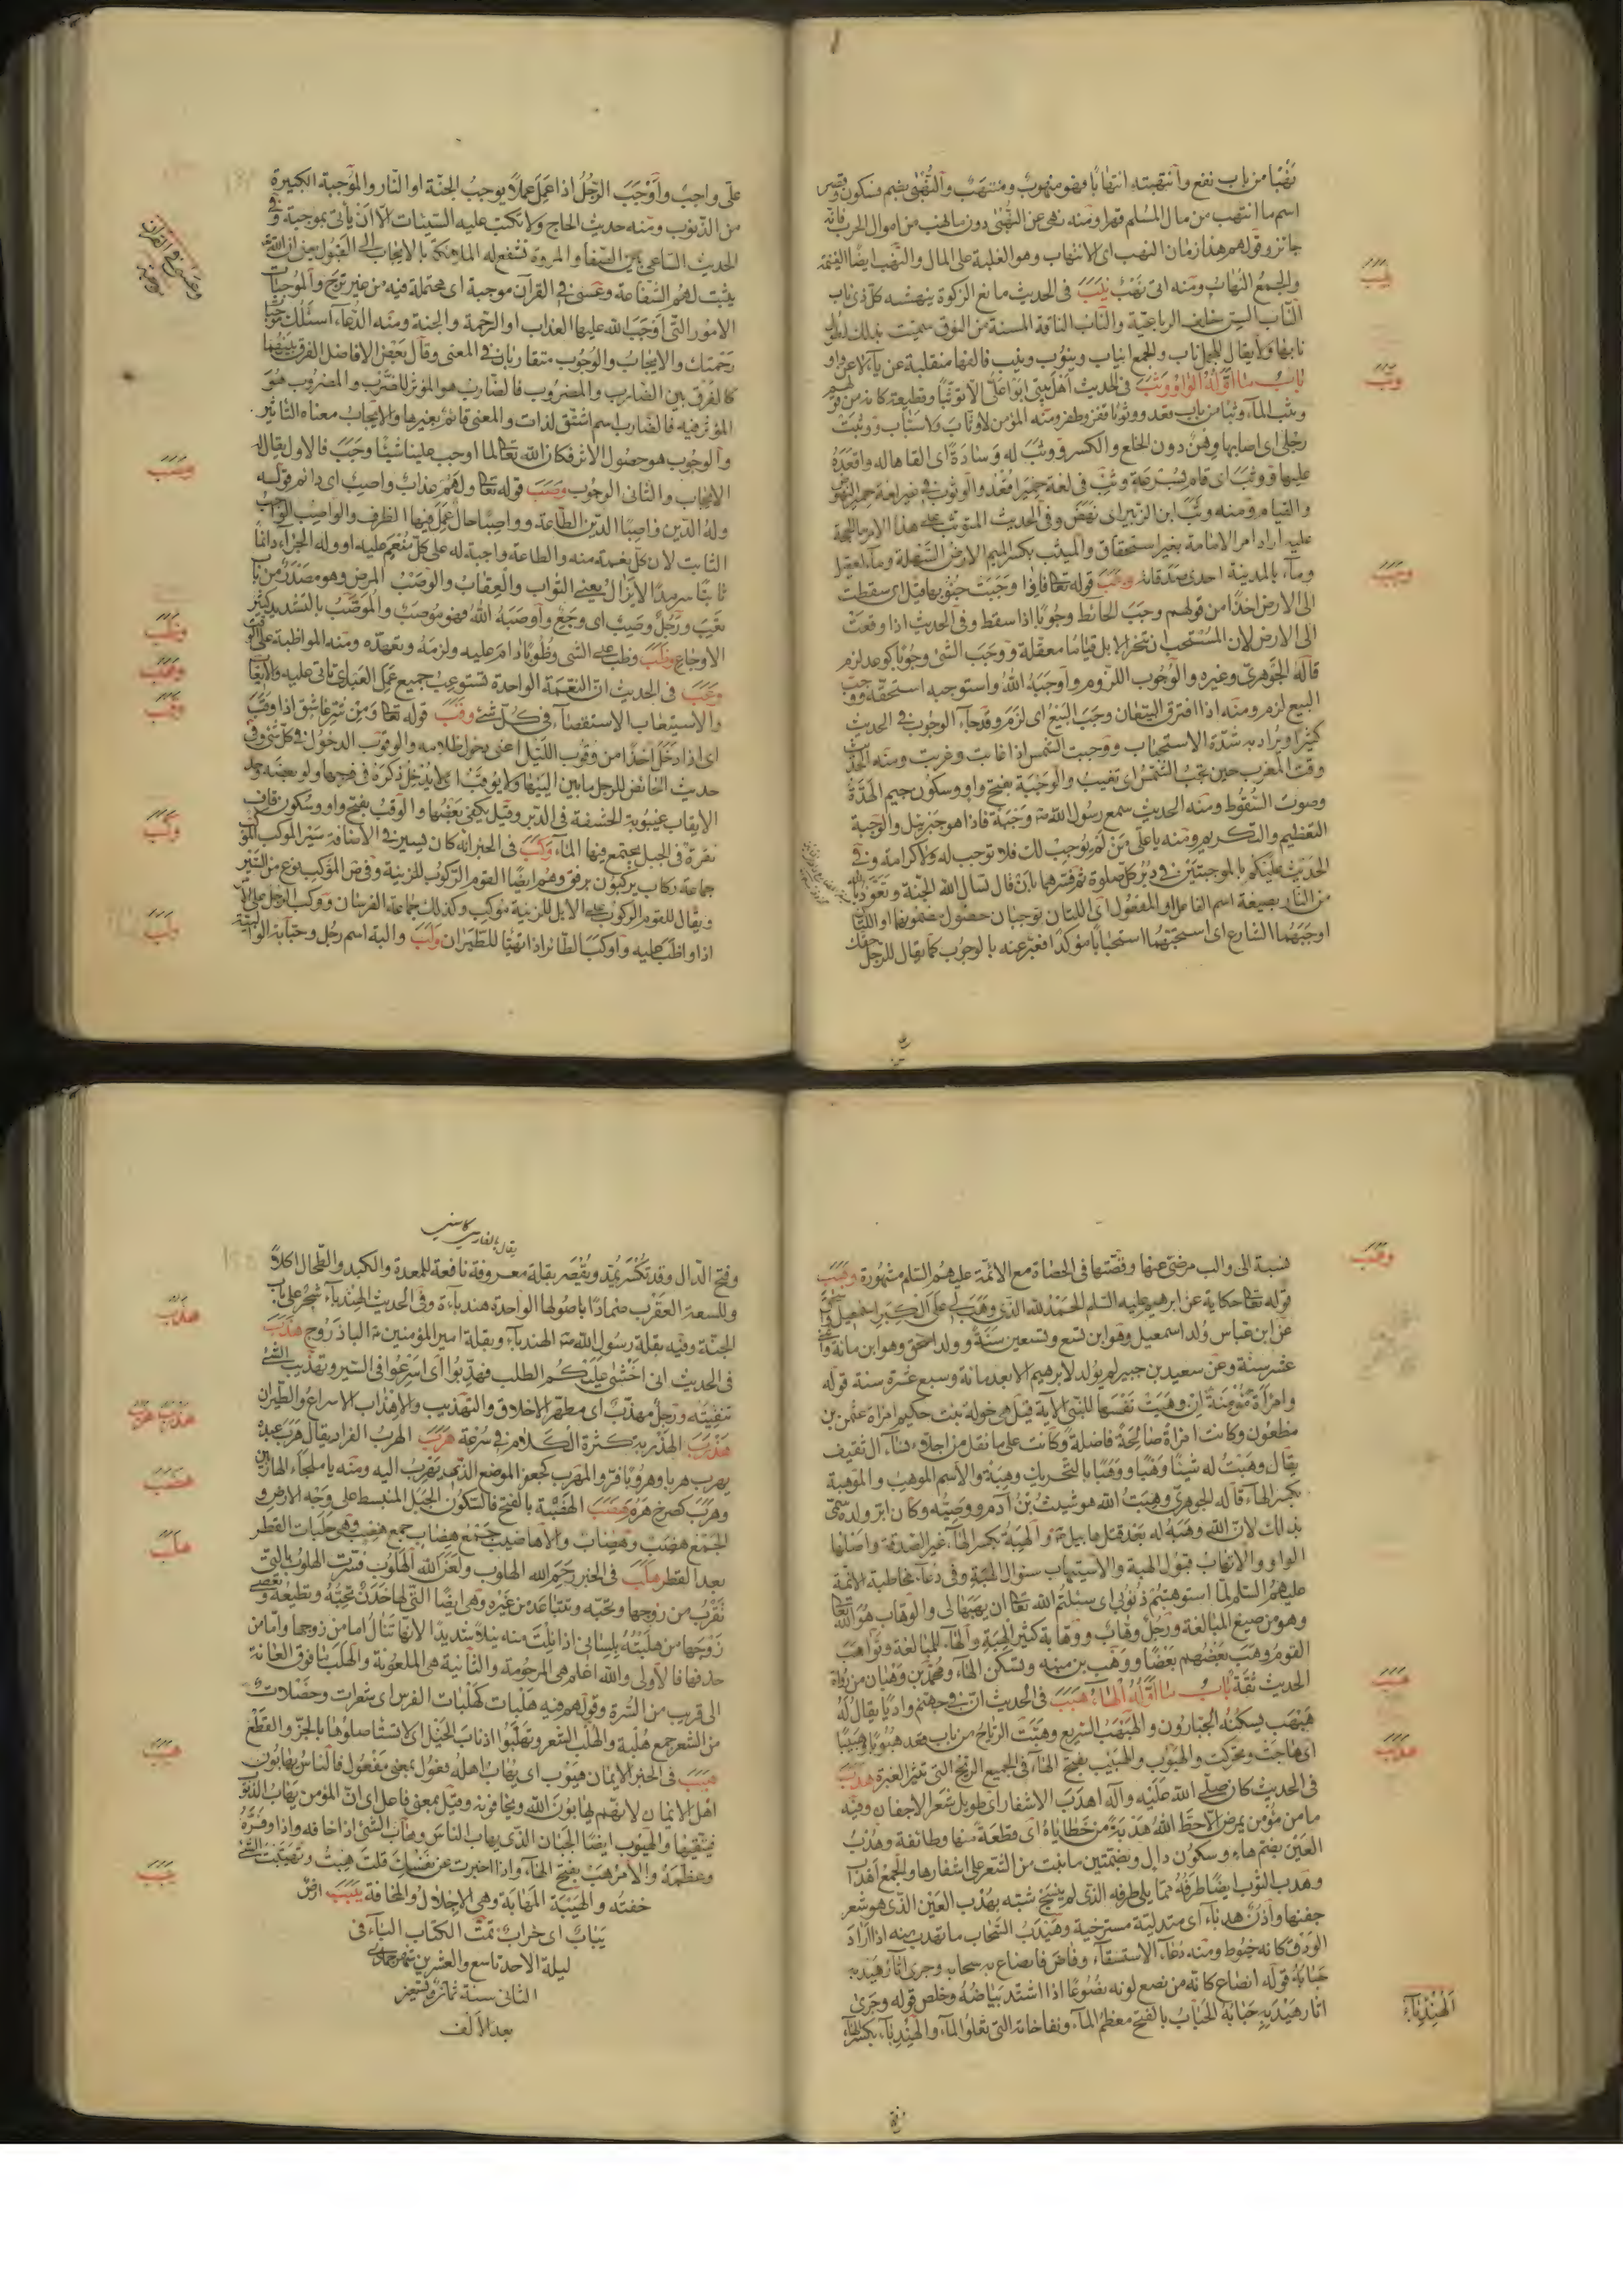 نَهْبًا من باب نفع وانتهبته انتهابًا فهو منهوبٌ ومنتهَبٌ والنُّهْبٰى بضم فسكون
اسم ما انتهب من مال المسلم قهرا ومنه نهى عن النُّهْبٰى دون ما نهب من اموال الحرب فانه
جائز وقولهم هذا زمان النهب اى الانتهاب وهو الغلبة على المال والنهب ايضًا الغنيمة
والجمع النهاب ومنه اتى بنهب نَيَبَ فى الحديث مانع الزكوة ينهشه كل ذى ناب
الناب السن خلف الرباعية والناب الناقة المسنة من النوق سميت بذلك لطول
نابها ولا يقال للجمل ناب والجمع انياب ونيوب ونيب فالفها منقلبة عن ياء لا عن واو
باب ما اوّله الواو وَثَبَ فى الحديث اهل بيتى ابوا علىّ الا توثّبًا وقطيعة
وثب الماء وثبًا من باب قعد ووثوبًا قفز وطفر ومنه المؤمن لا وثاب ولا سبّاب ووثبت
رجلى اى اصابها وهن دون الخلع والكسر ووثّب له وسادة اى القاها له واقعده
عليها ووثب اى قام بسرعة وثِبْ فى لغة حمير اقعد والوثوب فى غير لغة حمير النهوض
والقيام ومنه وثب ابن الزبير اى نهض وفى الحديث المتوثب على هذا الامر
عليه اراد امر الامامة بغير استحقاق والميثب بكسر الميم الارض السهلة وماء لعقيل
وماء بالمدينة احدى صدقاته وَجَبَ قوله تعالى فاذا وجبت جنوبها قيل اى سقطت
الى الارض اخذًا من قولهم وجب الحائط وجوبًا اذا سقط وفى الحديث اذا وقعت
الى الارض لان المستحب ان تنحر الابل قيامًا معقلة ووجب الشئ وجوبًا كوعد لزم
قاله الجوهرىّ وغيره والوجوب اللزوم واوجبه الله واستوجبه استحقه ووجب
البيع لزم ومنه اذا افترق البيّعان وجب البيع اى لزم وقد جاء الوجوب فى الحديث
كثيرًا ويراد به شدّة الاستحباب ووجبت الشمس اذا غابت وغربت ومنه الحديث
وقت المغرب حين تجب الشمس اى تغيب والوجبة بفتح واو وسكون جيم الهدّة
وصوت السقوط ومنه الحديث سمع رسول الله ص وجبة فاذا هو جبرئيل والوجبة
التعظيم والتكريم ومنه يا علىّ من لم يوجب لك فلا توجب له ولا كرامة وفى
الحديث عليكم بالموجبتين فى دبر كل صلوة ثم فسّرهما بان قال تسال الله الجنة وتعوذ بالله
من النار بصيغة اسم الفاعل او المفعول اى اللتان توجبان حصول مضمونهما او اللتان
اوجبهما الشارع اى استحبّهما استحبابًا مؤكدًا فعبّر عنه بالوجوب كما يقال للرجل حقك
نهب
وثب
وجب
علىّ واجب واوجب الرجل اذا عمل عملًا يوجب الجنّة او النّار والموجبة الكبيرة
من الذنوب ومنه حديث الحاج ولا تكتب عليه السيئات الّا ان يأتى بموجبة وفى
الحديث الساعى بين الصفا والمروة تشفع له الملائكة بالايجاب اى القبول
يثبت لهم الشفاعة وعسى فى القرآن موجبة اى محتملة فيه من غير ترجّ والموجبات
الامور التى اوجب الله عليها العذاب او الرحمة والجنة ومنه الدعاء اسئلك موجبات
رحمتك والايجاب والوجوب متقاربان فى المعنى وقال بعض الافاضل الفرق بينهما
كالفرق بين الضارب والمضروب فالضارب هو المؤثر للضرب والمضروب هو
المؤثر فيه فالضارب اسم اشتق لذات والمعنى قائم بغيرها والايجاب معناه التاثير
والوجوب هو حصول الاثر فكان الله تعالى لما اوجب علينا شيئًا وجب فالاول يقال له
الايجاب والثانى الوجوب وَصَبَ قوله تعالى ولهم عذاب واصب اى دائم قوله
وله الدين واصبًا الدين الطاعة وواصبًا حال عمل فيها الظرف والواصب الواجب
الثابت لان كل نعمة منه والطاعة واجبة له على كل منعم عليه او وله الجزاء دائمًا
ثابتًا سرمدًا لا يزال يعنى الثواب والعقاب والوصب المرض وهو مصدر من باب
تعب ورجل وصب اى وجع واوصبه الله فهو موصب والموصّب بالتشديد كثير
الاوجاع وَظَبَ وظب على الشئ وظوبًا دام عليه ولزمه وتعهده ومنه المواظبة على
وَعَبَ فى الحديث انّ النعمة الواحدة تستوعب جميع عمل العبد اى تاتى عليه والايعاب
والاستيعاب الاستقصاء فى كل شئ وَقَبَ قوله تعالى ومن شر غاسق اذا وقب
اى اذا دخل اخذًا من وقوب الليل اعنى دخول ظلامه والوقوب الدخول فى كل شئ وفى
حديث الحائض للرجل ما بين اليتيها ولا يوقب اى لا يدخل ذكره فى فرجها ولو بعضه وحد
الايقاب غيبوبة الحشفة فى الدبر وقيل يكفى بعضها والوقب بفتح واو وسكون قاف
نقرة فى الجبل يجتمع فيها الماء وَكَبَ فى الخبر انه كان يسير فى الاضافة سير الموكب الموكب
جماعة ركاب يركبون برفق وهم ايضًا القوم الركوب للزينة وفى ض الموكب نوع من السير
ويقال للقوم الركوب على الابل للزينة موكب وكذلك جماعة الفرسان ووكب الرجل على الامر
اذا واظب عليه واوكب الطائر اذا تهيّا للطيران وَلَبَ والبة اسم رجل وحبابة الوالبيّة
وصب
وظب
وعب
وقب
وكب
ولب
نسبة الى والب مرضى عنها وقصّتها فى الحصاة مع الائمة عليهم السلام مشهورة وَهَبَ
قوله تعالى حكاية عن ابرهيم عليه السلم الحمد لله الذى وهب لى على الكبر اسمعيل واسحق
عن ابن عباس وُلد اسمعيل وهو ابن تسع وتسعين سنة وولد اسحق وهو ابن مائة واثنتى
عشر سنة وعن سعيد بن جبير لم يولد لابرهيم الا بعد مائة وسبع عشرة سنة قوله
وامرأة مؤمنة ان وهبت نفسها للنبى الآية قيل هى خولة بنت حكيم امراة عثمن بن
مظعون وكانت امراة صالحة فاضلة وكانت على ما نقل من اجلاء نساء آل ثقيف
يقال وهبت له شيئًا وهبًا ووهبًا بالتحريك وهبة والاسم الموهب والموهبة
بكسر الهاء قاله الجوهرىّ وهبة الله هو شيث بن آدم ووصيّه وكان ابر ولده سمّى
بذلك لانّ الله وهبه له بعد قتل هابيل ع والهبة بكسر الهاء غير الصدقة واصلها
الواو والاتهاب قبول الهبة والاستيهاب سئوال الهبة وفى دعاء مخاطبة الائمّة
عليهم السلم لمّا استوهبتم ذنوبى اى سئلتم الله تعالى ان يهبها لى والوهاب هو الله تعالى
وهو من صيغ المبالغة ورجل وهاب ووهابة كثير الهبة والهاء للمبالغة وتواهب
القوم وهب بعضهم بعضًا ووهب بن منبه وتسكن الهاء ومحمد بن وهبان من رواة
الحديث ثقة باب ما اوّله الهاء هَبَبَ فى الحديث انّ فى جهنّم واديًا يقال له
هبهب يسكنه الجبارون والهبهب السريع وهبّت الرياح من باب قعد هبوبًا وهبيبًا
اى هاجت وتحركت والهبوب والهبيب بفتح الهاء فى الجميع الريح التى تثير الغبرة هَدَبَ
فى الحديث كان صلى الله عليه وآله اهدب الاشفار اى طويل شعر الاجفان وفيه
ما من مؤمن يمرض الّا حطّ الله هدبة من خطاياه اى قطعة منها وطائفة وهدب
العين بضم هاء وسكون دال وبضمتين ما نبت من الشعر على اشفارها والجمع اهداب
وهدب الثوب ايضًا طرفه مما يلى طرفه الذى لم ينسج شبّه بهدب العين الذى هو شعر
جفنها واذن هدباء اى متدلية مسترخية وهيدب السحاب ما تهدب منه اذا اراد
الودق كانه خيوط ومنه دعاء الاستسقاء وفاض فانصاع به سحابه وجرى آثار هيدبه
حبابه قوله انصاع كانه من نصع لونه نصوعًا اذا اشتد بياضه وخلص قوله وجرى
آثار هيدبه حبابه الحباب بالفتح معظم الماء ونفاخاته التى تعلو الماء والهندباء بكسر الهاء
وهب
هبب
هدب
الهندباء
يقال بالفارسى كاسنى
وفتح الدال وقد تكسر يمد ويقصر بقلة معروفة نافعة للمعدة والكبد والطحال اكلًا
وللسعة العقرب ضمادًا باصولها الواحدة هندباءة وفى الحديث الهندباء شجر على باب
الجنة وفيه بقلة رسول الله ص الهندباء وبقلة امير المؤمنين ع الباذروج هَذَبَ
فى الحديث انى اخشى عليكم الطلب فهذّبوا اى اسرعوا فى السير وتهذيب الشئ
تنقيته ورجل مهذب اى مطهر الاخلاق والتهذيب والاهذاب الاسراع والطيران
هَذْرَبَ الهذربة كثرة الكلام فى سرعة هَرَبَ الهرب الفرار يقال هرب عبده
يهرب هربا وهروبًا فرّ والمهرب كجعفر الموضع الذى يهرب اليه ومنه يا ملجأ الهاربين
وهرب كصرخ هَضَبَ الهضبة بالفتح فالسكون الجبل المنبسط على وجه الارض و
الجمع هضب وهضاب والاهاضيب جمع هضاب جمع هضب وهى حلبات القطر
بعد القطر هَلَبَ فى الخبر رحم الله الهلوب ولعن الله الهلوب فسرت الهلوب بالتى
تقرب من زوجها وتحبّه وتتباعد من غيره وهى ايضًا التى لها خدن تحبّه وتطيعه وتعصى
زوجها من هلبته بلسانى اذا نلت منه نيلًا شديدًا لانها تنال اما من زوجها وامّا من
خدنها فالاولى والله اعلم هى المرحومة والثانية هى الملعونة والهلب ما فوق العانة
الى قريب من السرة وقولهم فيه هلبات كهلبات الفرس اى شعرات وخصلات
من الشعر جمع هلبة والهلب الشعر وتهلبوا اذناب الخيل اى لا تستاصلوها بالجزّ والقطع
هَيَبَ فى الخبر الايمان هيوب اى يهاب اهله فعول بمعنى مفعول فالناس يهابون
اهل الايمان لانهم يهابون الله ويخافونه وقيل بمعنى فاعل اى انّ المؤمن يهاب الذنوب
فيتقيها والهيوب ايضًا الجبان الذى يهاب الناس وهاب الشئ اذا خافه واذا وقّره
وعظّمه والامر هب بفتح الهاء واذا اخبرت عن نفسك قلت هبت وتهيّبت الشئ
خفته والهيبة المهابة وهى الاجلال والمخافة يَبَبَ ارض
يباب اى خراب تمّت الكتاب الباء فى
ليلة الاحد تاسع والعشرين شهر جمادى
الثانى سنة ثمان وتسعين
بعد الالف
هذب
هذرب هرب
هضب
هلب
هيب
يبب